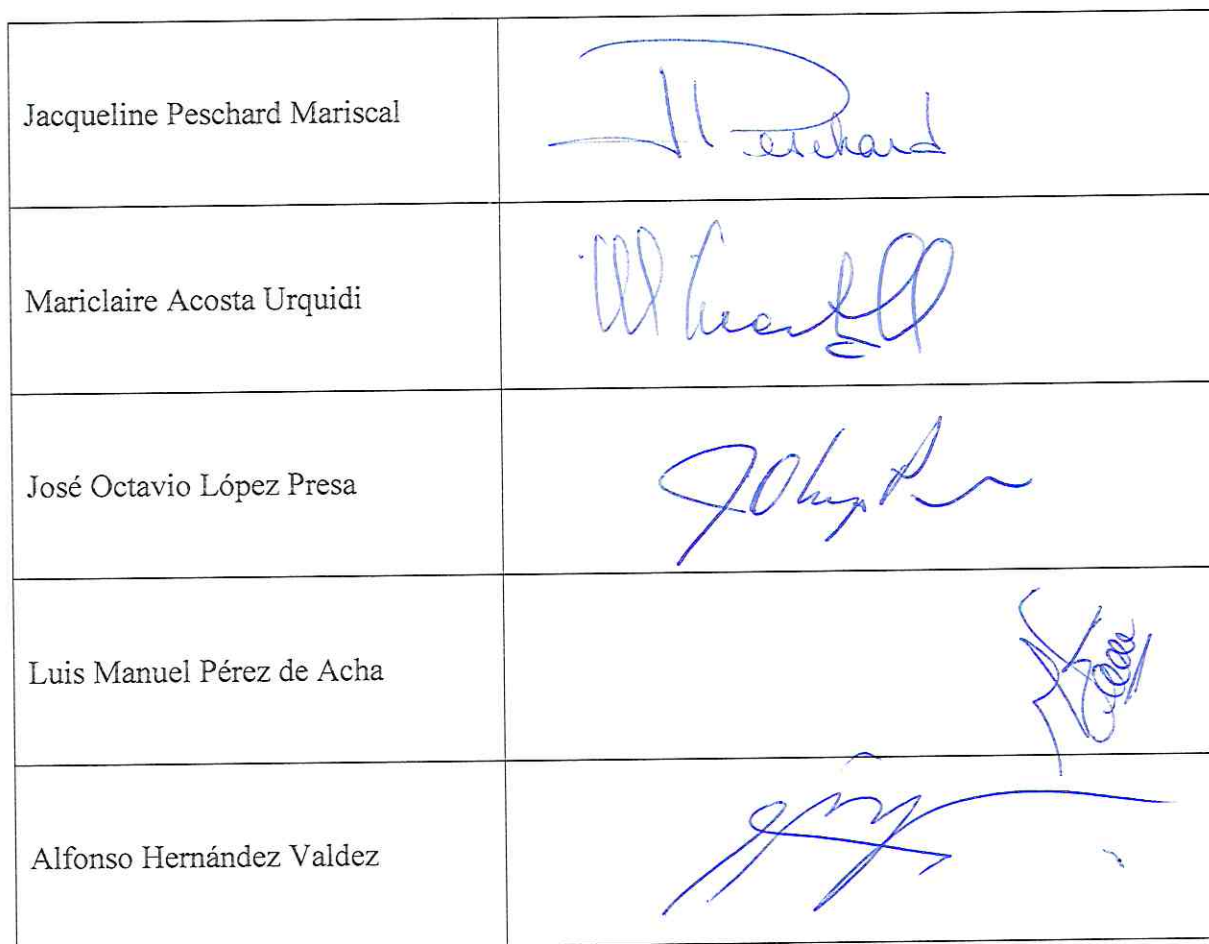 Jacqueline Peschard Mariscal
JPeschard
Mariclaire Acosta Urquidi
José Octavio López Presa
Luis Manuel Pérez de Acha
Alfonso Hernández Valdez